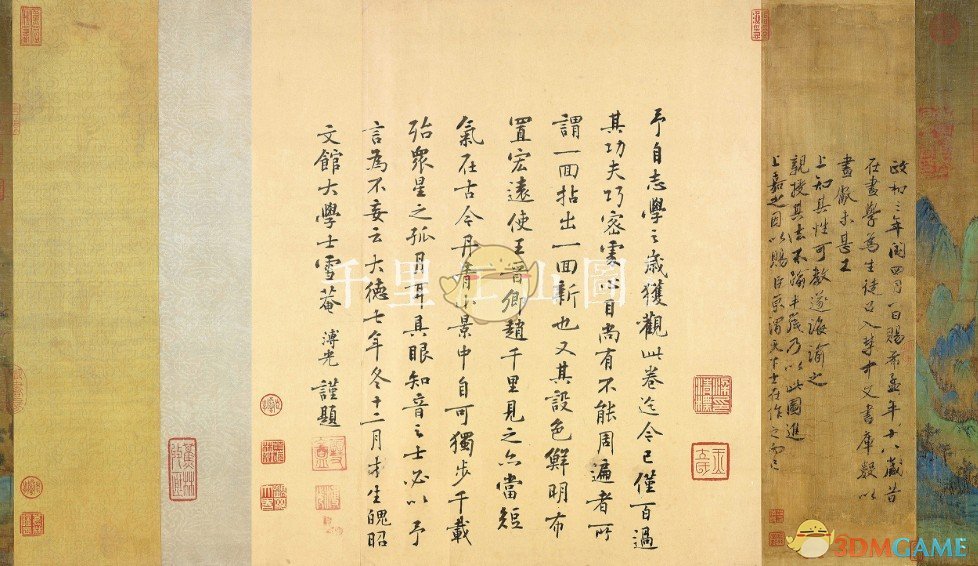 政和三年閏四月一日賜希孟年十八歲昔
在畫學為生徒召入禁中文書庫數以
畫獻未甚工
上知其性可教遂誨諭之
親授其法不踰半歲乃以此圖進
上嘉之因以賜臣京謂天下士在作之而已
予自志學之歲獲觀此卷迄今已僅百過
其功夫巧密處心目尚有不能周遍者所
謂一回拈出一回新也又其設色鮮明布
置宏遠使王晉卿趙千里見之亦當短
氣在古今丹青小景中自可獨步千載
殆眾星之孤月耳具眼知音之士必以予
言為不妄云大德七年冬十二月才生魄昭
文館大學士雪菴溥光謹題
千里江山圖
3DMGAME